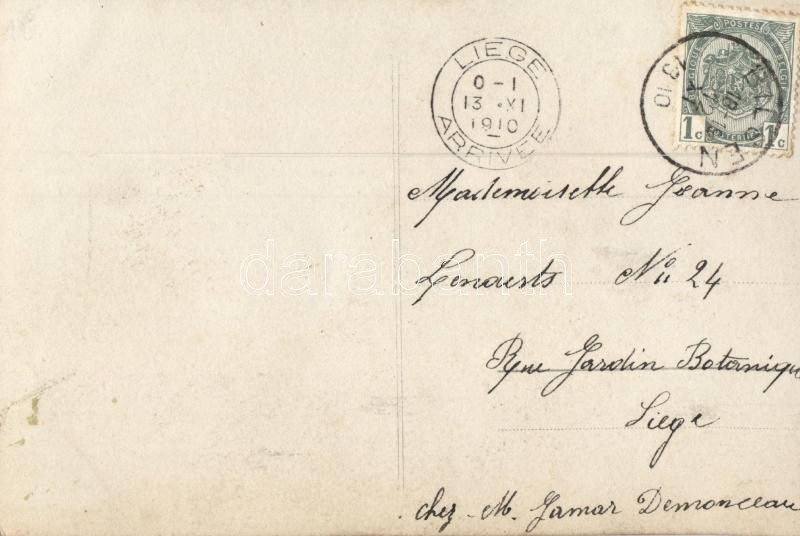 LIEGE
0-1
13 XI
1910
ARRIVÉE
POSTES
1c 1c
13 10
Mademoiselle Jeanne
Lenaerts No 24
Rue Jardin Botanique
Liege
chez M. Jamar Demonceau
darabanth